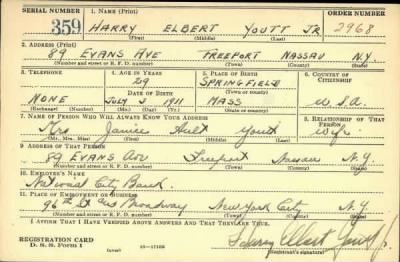 SERIAL NUMBER 1. NAME (Print) ORDER NUMBER
359 HARRY ELBERT YOUTT JR 2968
(First) (Middle) (Last)
2. ADDRESS (Print)
89 EVANS AVE FREEPORT NASSAU N.Y.
(Number and street or R. F. D. number) (Town) (County) (State)
3. TELEPHONE 4. AGE IN YEARS 5. PLACE OF BIRTH 6. COUNTRY OF CITIZENSHIP
29 SPRINGFIELD
DATE OF BIRTH (Town or county)
NONE JULY 3 1911 MASS U.S.A.
(Exchange) (Number) (Mo.) (Day) (Yr.) (State or country)
7. NAME OF PERSON WHO WILL ALWAYS KNOW YOUR ADDRESS 8. RELATIONSHIP OF THAT PERSON
Mrs Janice Ault Youtt wife
(Mr., Mrs., Miss) (First) (Middle) (Last)
9. ADDRESS OF THAT PERSON
89 Evans Ave Freeport Nassau N.Y.
(Number and street or R. F. D. number) (Town) (County) (State)
10. EMPLOYER'S NAME
National City Bank
11. PLACE OF EMPLOYMENT OR BUSINESS
96th St and Broadway New York City N.Y.
(Number and street or R. F. D. number) (Town) (County) (State)
I AFFIRM THAT I HAVE VERIFIED ABOVE ANSWERS AND THAT THEY ARE TRUE.
REGISTRATION CARD
D. S. S. Form 1 (over) 16-17105 Harry Elbert Youtt Jr.
(Registrant's signature)